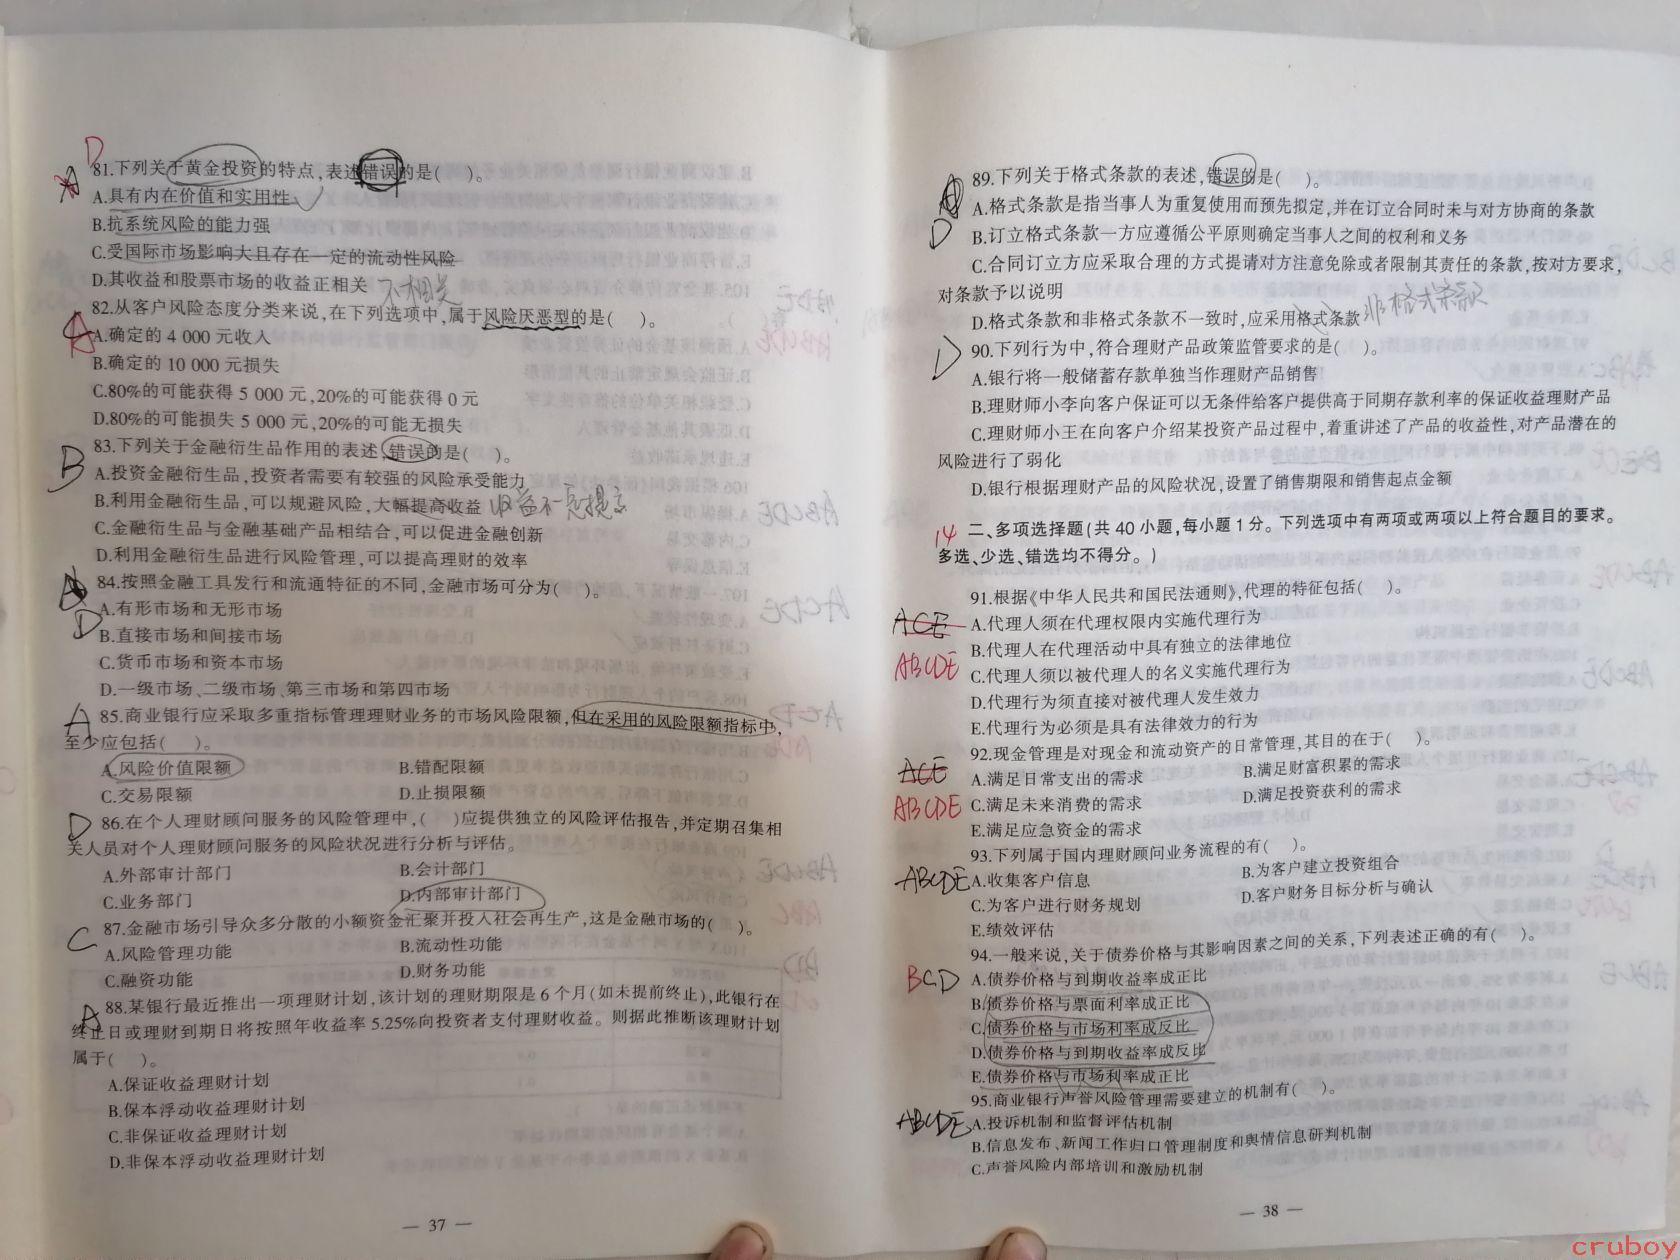 D
81.下列关于黄金投资的特点,表述错误的是(　　)。
A.具有内在价值和实用性
B.抗系统风险的能力强
C.受国际市场影响大且存在一定的流动性风险
D.其收益和股票市场的收益正相关 不相关
82.从客户风险态度分类来说,在下列选项中,属于风险厌恶型的是(　　)。
A
A.确定的 4 000 元收入
B.确定的 10 000 元损失
C.80%的可能获得 5 000 元,20%的可能获得 0 元
D.80%的可能损失 5 000 元,20%的可能无损失
83.下列关于金融衍生品作用的表述,错误的是(　　)。
B
A.投资金融衍生品,投资者需要有较强的风险承受能力
B.利用金融衍生品,可以规避风险,大幅提高收益 收益不一定提高
C.金融衍生品与金融基础产品相结合,可以促进金融创新
D.利用金融衍生品进行风险管理,可以提高理财的效率
84.按照金融工具发行和流通特征的不同,金融市场可分为(　　)。
A.有形市场和无形市场
D
B.直接市场和间接市场
C.货币市场和资本市场
D.一级市场、二级市场、第三市场和第四市场
A
85.商业银行应采取多重指标管理理财业务的市场风险限额,但在采用的风险限额指标中,
至少应包括(　　)。
A.风险价值限额 B.错配限额
C.交易限额 D.止损限额
D
86.在个人理财顾问服务的风险管理中,(　　)应提供独立的风险评估报告,并定期召集相
关人员对个人理财顾问服务的风险状况进行分析与评估。
A.外部审计部门 B.会计部门
C.业务部门 D.内部审计部门
87.金融市场引导众多分散的小额资金汇聚并投入社会再生产,这是金融市场的(　　)。
C
A.风险管理功能 B.流动性功能
C.融资功能 D.财务功能
88.某银行最近推出一项理财计划,该计划的理财期限是 6 个月(如未提前终止),此银行在
A
终止日或理财到期日将按照年收益率 5.25%向投资者支付理财收益。则据此推断该理财计划
属于(　　)。
A.保证收益理财计划
B.保本浮动收益理财计划
C.非保证收益理财计划
D.非保本浮动收益理财计划
— 37 —
89.下列关于格式条款的表述,错误的是(　　)。
A.格式条款是指当事人为重复使用而预先拟定,并在订立合同时未与对方协商的条款
D
B.订立格式条款一方应遵循公平原则确定当事人之间的权利和义务
C.合同订立方应采取合理的方式提请对方注意免除或者限制其责任的条款,按对方要求,
对条款予以说明
D.格式条款和非格式条款不一致时,应采用格式条款 非格式条款
D
90.下列行为中,符合理财产品政策监管要求的是(　　)。
A.银行将一般储蓄存款单独当作理财产品销售
B.理财师小李向客户保证可以无条件给客户提供高于同期存款利率的保证收益理财产品
C.理财师小王在向客户介绍某投资产品过程中,着重讲述了产品的收益性,对产品潜在的
风险进行了弱化
D.银行根据理财产品的风险状况,设置了销售期限和销售起点金额
14
二、多项选择题(共 40 小题,每小题 1 分。下列选项中有两项或两项以上符合题目的要求。
多选、少选、错选均不得分。)
91.根据《中华人民共和国民法通则》,代理的特征包括(　　)。
ACE
A.代理人须在代理权限内实施代理行为
B.代理人在代理活动中具有独立的法律地位
ABCDE
C.代理人须以被代理人的名义实施代理行为
D.代理行为须直接对被代理人发生效力
E.代理行为必须是具有法律效力的行为
92.现金管理是对现金和流动资产的日常管理,其目的在于(　　)。
ACE
A.满足日常支出的需求 B.满足财富积累的需求
ABCDE
C.满足未来消费的需求 D.满足投资获利的需求
E.满足应急资金的需求
93.下列属于国内理财顾问业务流程的有(　　)。
ABCDE
A.收集客户信息 B.为客户建立投资组合
C.为客户进行财务规划 D.客户财务目标分析与确认
E.绩效评估
94.一般来说,关于债券价格与其影响因素之间的关系,下列表述正确的有(　　)。
BCD
A.债券价格与到期收益率成正比
B.债券价格与票面利率成正比
C.债券价格与市场利率成反比
D.债券价格与到期收益率成反比
E.债券价格与市场利率成正比
95.商业银行声誉风险管理需要建立的机制有(　　)。
ABCDE
A.投诉机制和监督评估机制
B.信息发布、新闻工作归口管理制度和舆情信息研判机制
C.声誉风险内部培训和激励机制
— 38 —
cruboy